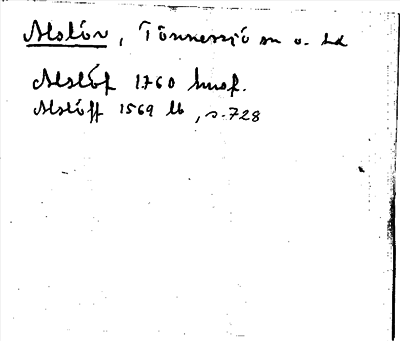 Alslöv, Tönnersjö sn o. hd
Alslöf 1760 hmsf.
Alslöff 1569 lb, s. 728